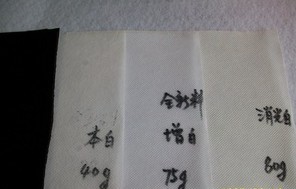 本白
40g
全新料
增白
75g
消光白
80g